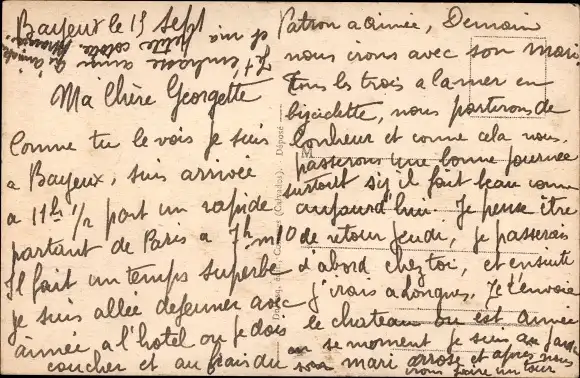 Bayeux le 15 Sept
Ma Chère Georgette
Comme tu le vois je suis
a Bayeux, suis arrivée
a 11h 1/2 par un rapide
partant de Paris a 7h m10
Il fait un temps superbe
je suis allée dejeuner avec
aimée a l'hotel ou je dois
coucher et au frais du
Patron a aimée, Demain
nous irons avec son mari
tous les trois a la mer en
bicyclette, nous partirons de
bonheur et comme cela nous
passerons une bonne journée
surtout s'il fait beau comme
aujourd'hui. Je pense être
de retour jeudi, je passerais
d'abord chez toi, et ensuite
j'irais a Longues, Je t'envoie
le chateau ou est Aimée
en se moment je suis au jardin
son mari arrose et après nous
irons faire un tour
Je t'embrasse ainsi qu'aimée
et ma petite